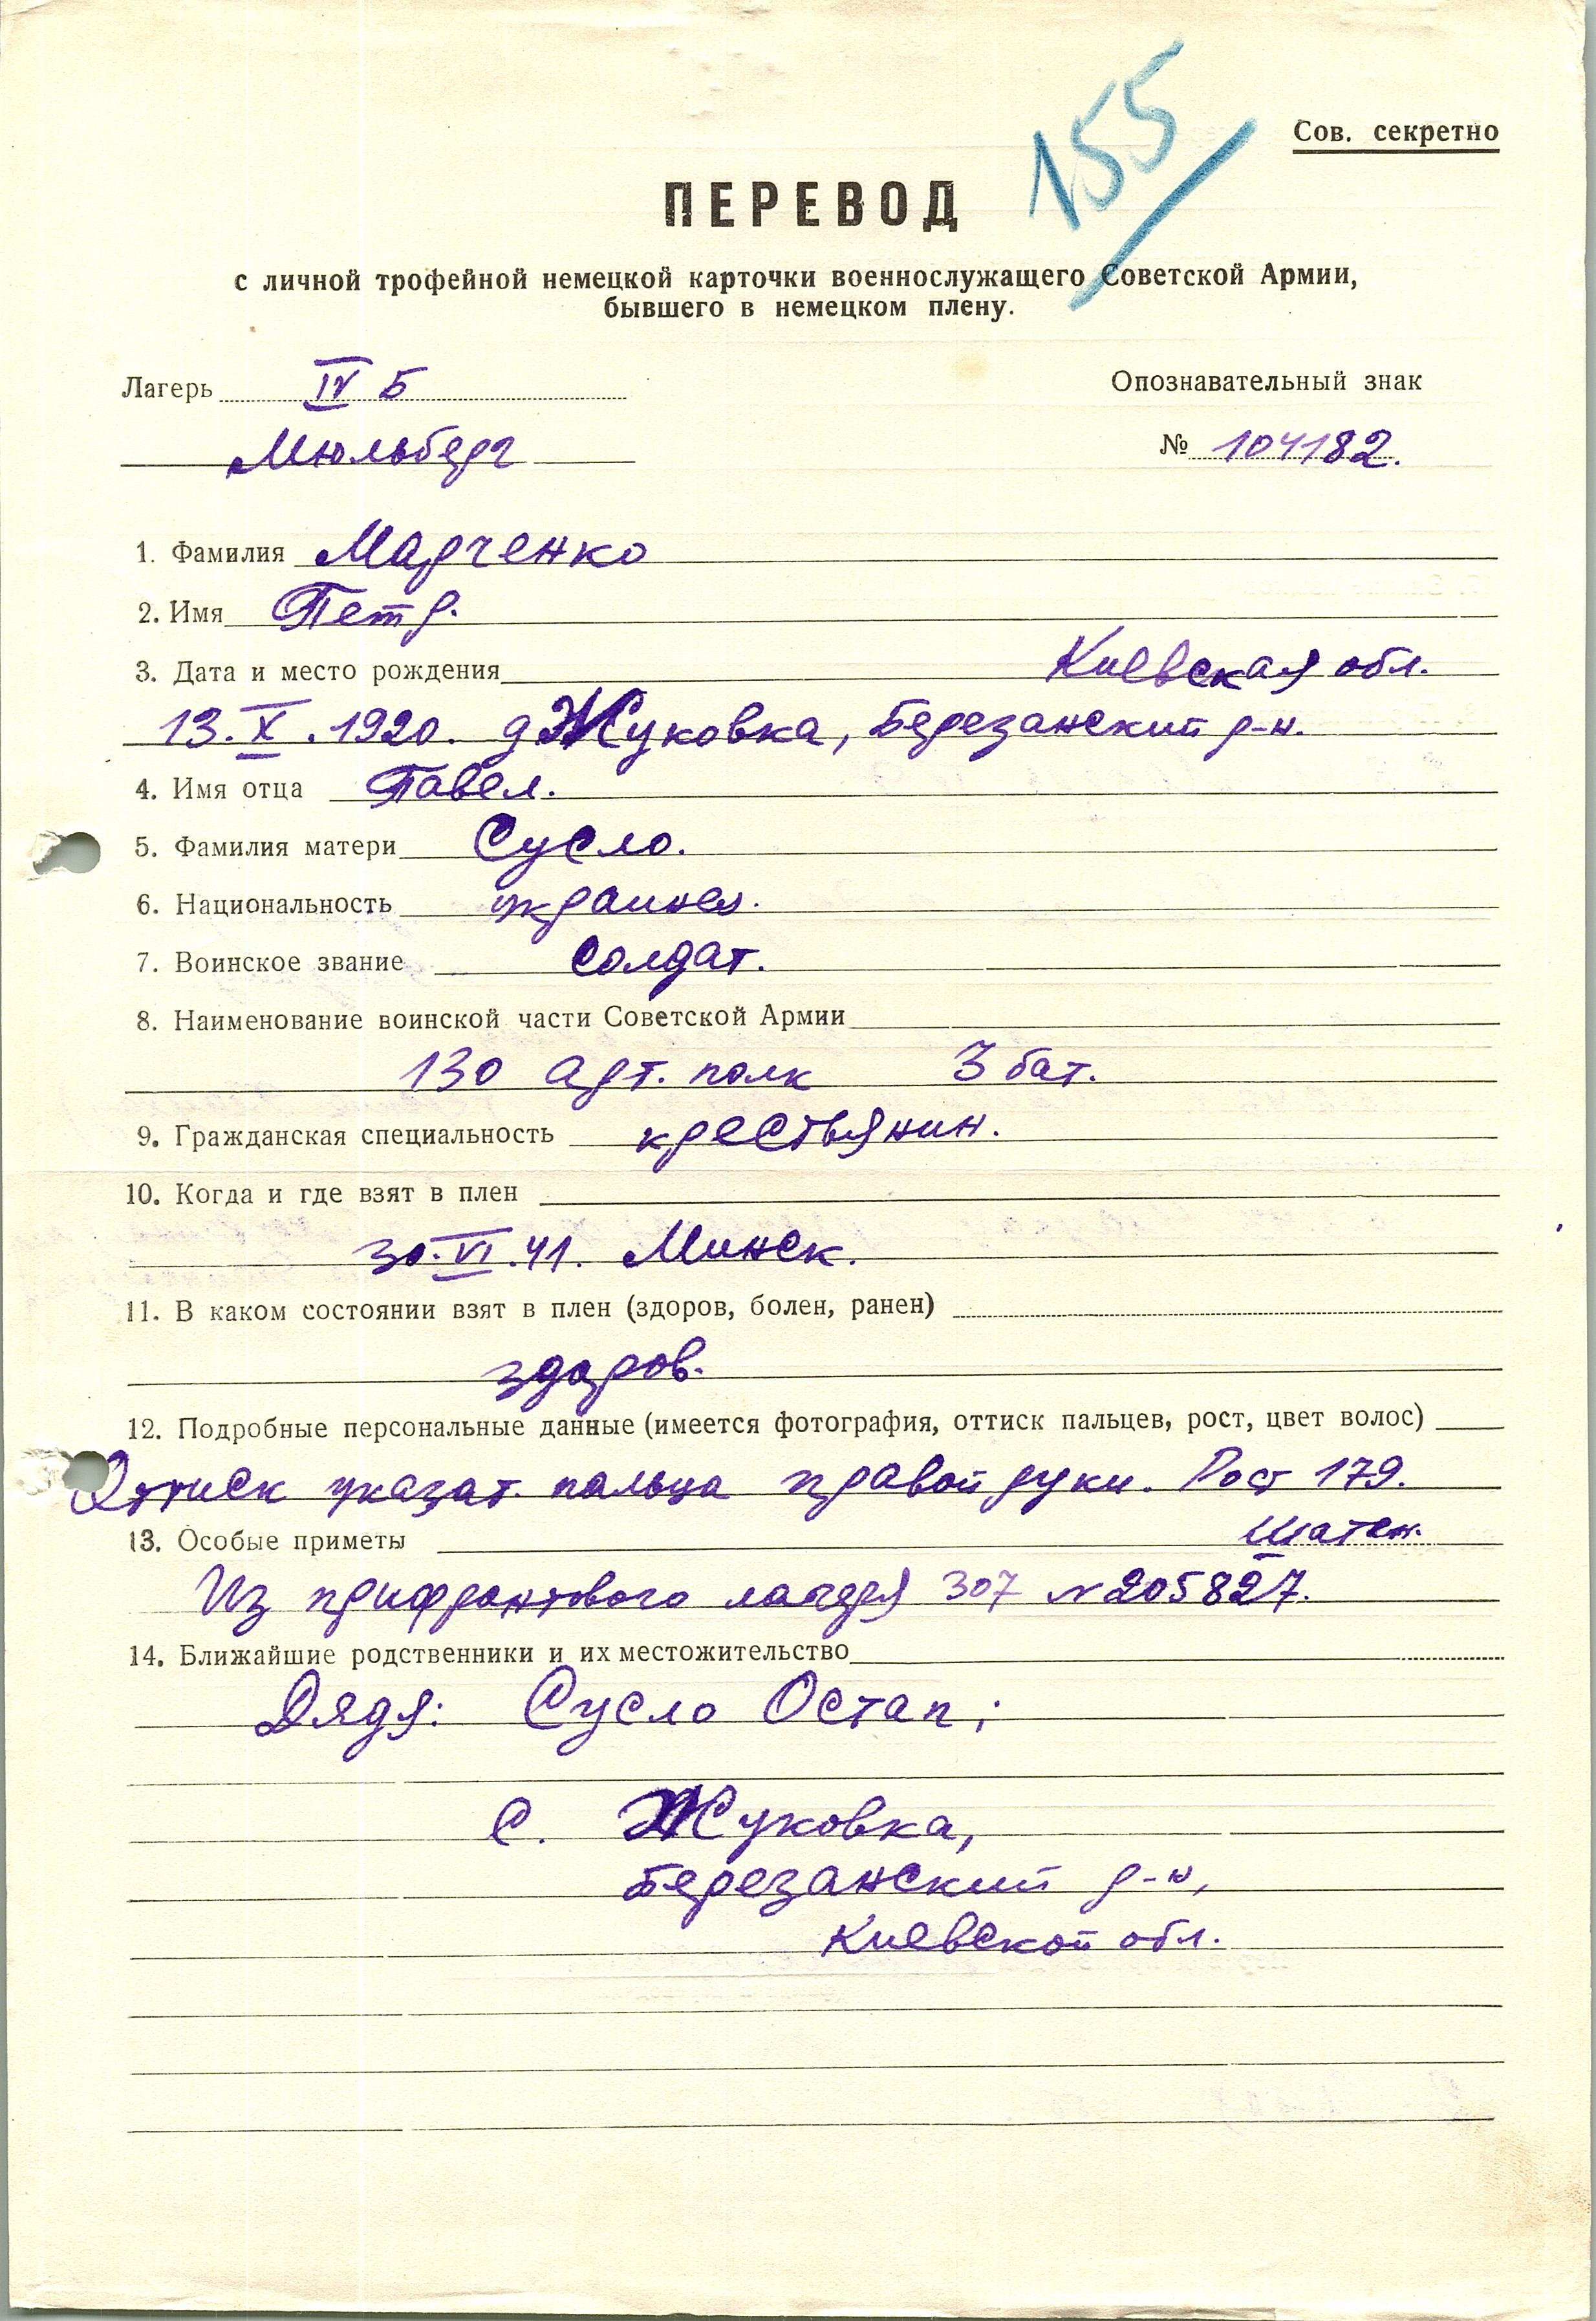 155
Сов. секретно
ПЕРЕВОД
с личной трофейной немецкой карточки военнослужащего Советской Армии,
бывшего в немецком плену.
Лагерь IV Б
Опознавательный знак
Мюльберг
№ 104182.
1. Фамилия Марченко
2. Имя Петр.
3. Дата и место рождения Киевская обл.
13.X.1920. д Жуковка, Березанский р-н.
4. Имя отца Павел.
5. Фамилия матери Сусло.
6. Национальность украинец.
7. Воинское звание солдат.
8. Наименование воинской части Советской Армии
130 арт. полк 3 бат.
9. Гражданская специальность крестьянин.
10. Когда и где взят в плен
30.VI.41. Минск.
11. В каком состоянии взят в плен (здоров, болен, ранен)
здоров.
12. Подробные персональные данные (имеется фотография, оттиск пальцев, рост, цвет волос)
Оттиск указат. пальца правой руки. Рост 179.
13. Особые приметы шатен.
Из прифронтового лагеря 307 N 205827.
14. Ближайшие родственники и их местожительство
Дядя: Сусло Остап;
с. Жуковка,
Березанский р-н,
Киевской обл.